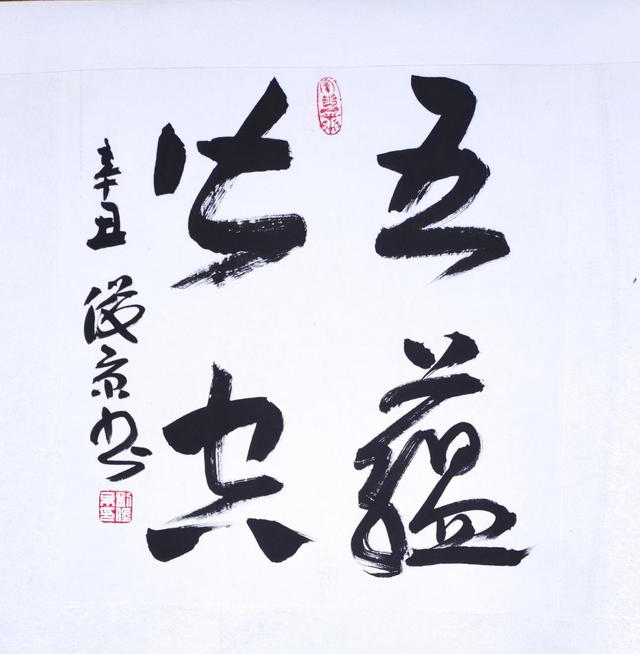 五蕴
皆空
辛丑 俊京书